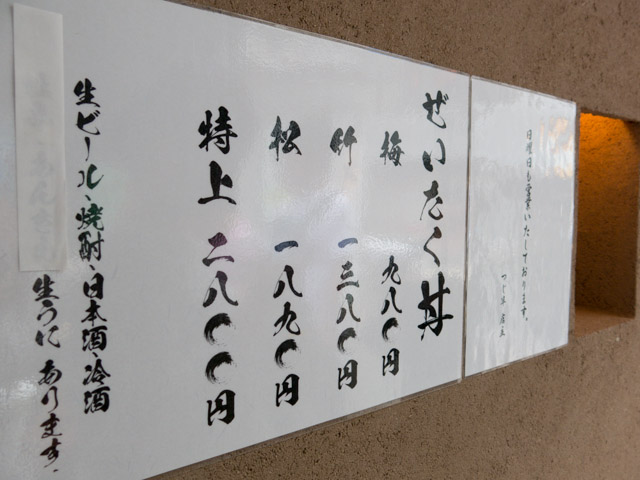 日曜日も営業いたしております。
つじ半 店主
ぜいたく丼
梅 九八〇円
竹 一三八〇円
松 一八九〇円
特上 二八〇〇円
生ビール、焼酎、日本酒、冷酒
生うにあります。